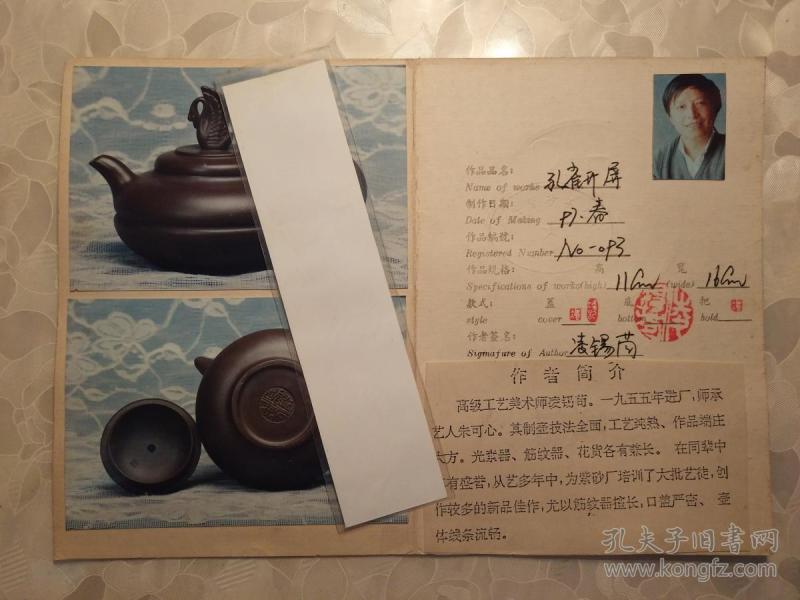 作品品名：
Name of works 孔雀开屏
制作日期：
Date of Making 97.春
作品编號：
Registered Number No-093
作品规格： 高 宽
Specifications of works(high) 11Cm (wide) 16Cm
款式： 盖 底 把
style cover bottom hold
作者签名：
Signature of Author 凌锡苟
作者简介
高级工艺美术师凌锡苟。一九五五年进厂，师承
艺人朱可心。其制壶技法全面，工艺纯熟、作品端庄
大方。光素器、筋纹器、花货各有兼长。 在同辈中
有盛誉，从艺多年中，为紫砂厂培训了大批艺徒，创
作较多的新品佳作，尤以筋纹器擅长，口盖严密、 壶
体线条流畅。
孔夫子旧书网
www.kongfz.com